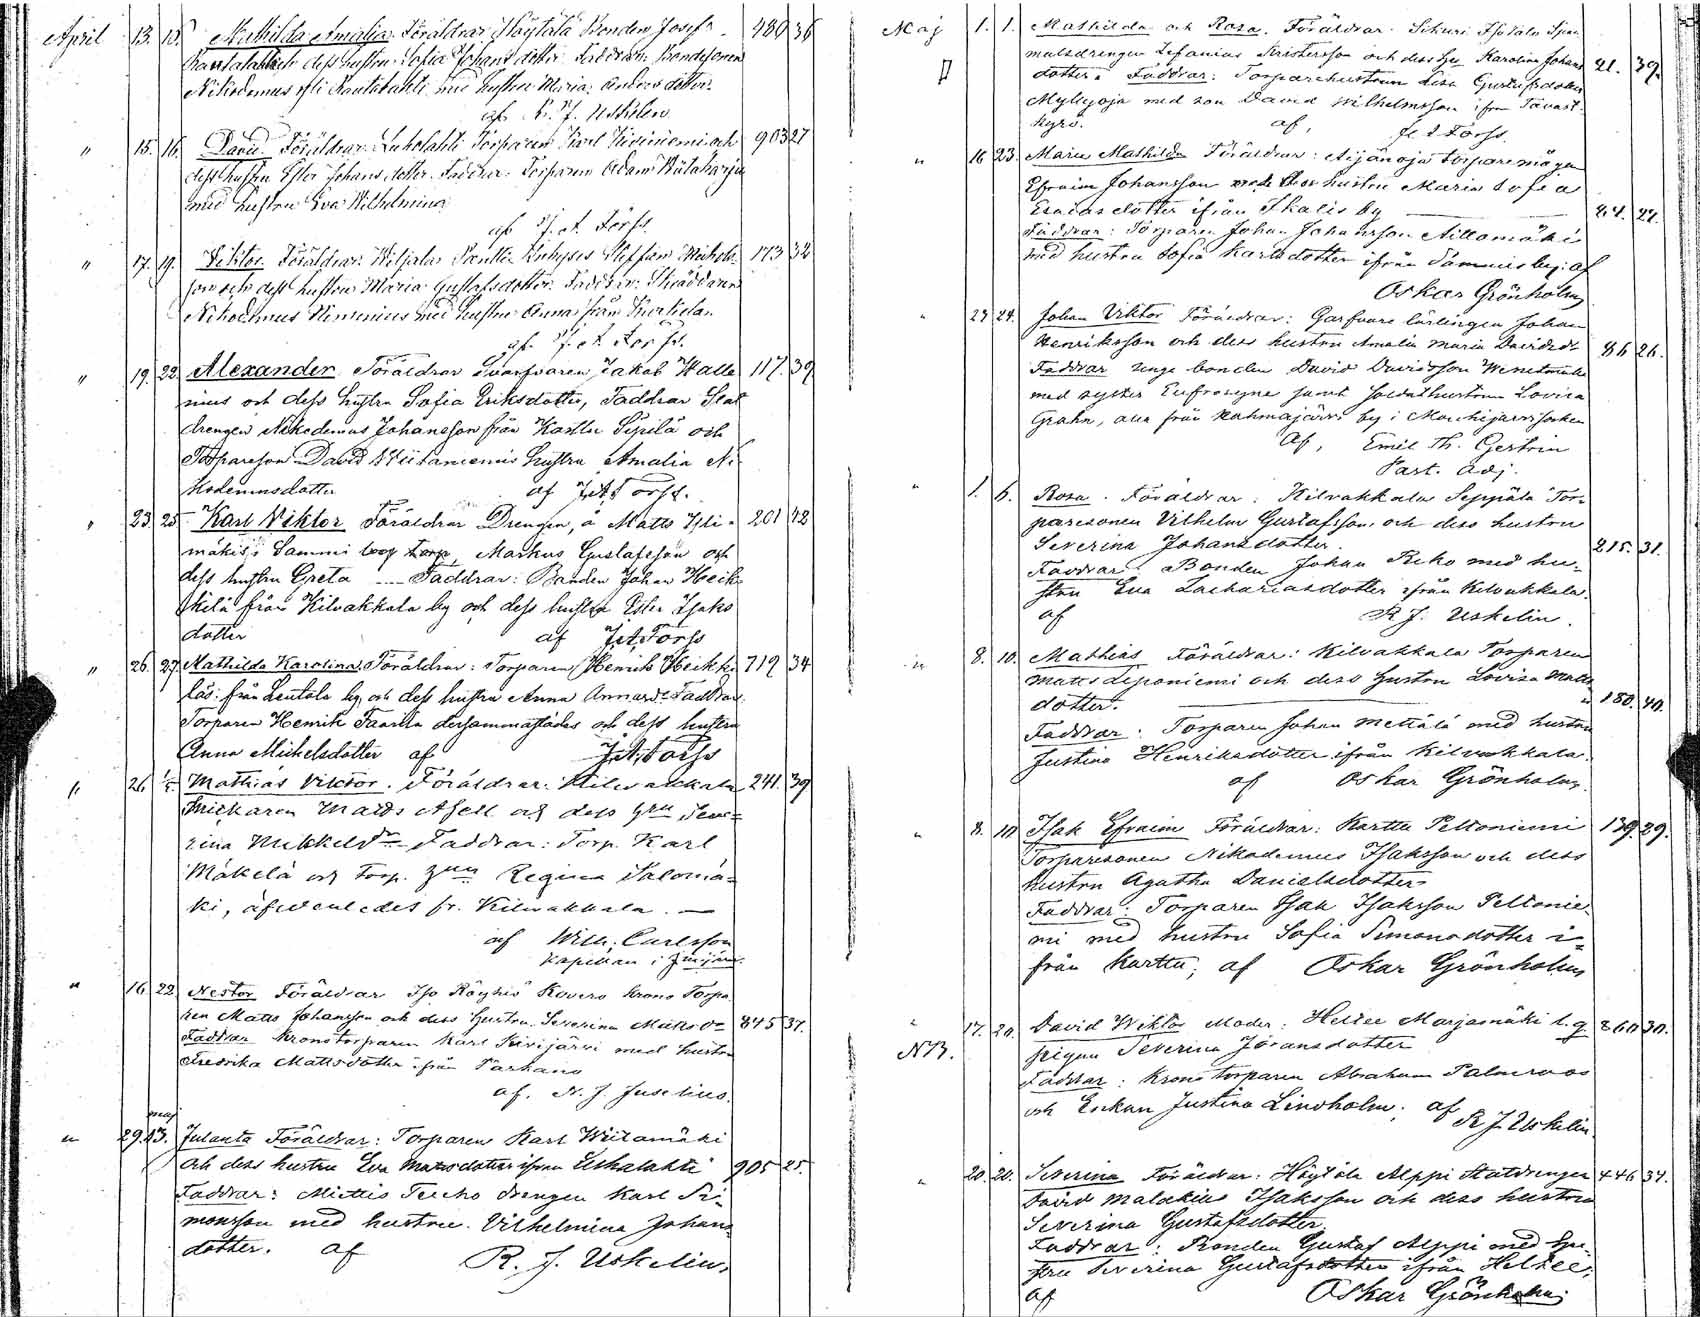 April 13. 15. Mathilda Amalia. Föräldrar Höytölä Bonden Josef 480 36
Rautalahti dess hustru Sofia Johansdotter Faddrar: Bondesonen
Nikodemus Rautalahti med hustru Maria Andersdotter.
af R. J. Uskelin
" 15. 16. David Föräldrar: Luhalahti Torparen Karl Kiviniemi och 903 27
dess hustru Ester Johansdotter. Faddrar: Torparen Adam Riitaharju
med hustru Eva Wilhelmina
af J. A. Forss.
" 17. 19. Viktor. Föräldrar: Wiljala Pentti Inhyses Steffan Michels- 173 32
son och dess hustru Maria Gustafsdotter. Faddrar: Skräddaren
Nikodemus med hustru Anna från
af J. A. Forss.
" 19. 22. Alexander Föräldrar Svarfvaren Jakob Walle 117. 39
nius och dess hustru Sofia Eriksdotter, Faddrar Stat
drengen Nikodemus Johansson från Karttu Sipilä och
Torpareson David Wiitaniemis hustru Amalia Ni-
kodemusdotter af J. A. Forss.
" 23. 25. Karl Viktor Föräldrar Drengen, å Matts Yli- 201 42
mäkis i Sammi by Torp, Markus Gustafsson och
dess hustru Greta Faddrar: Bonden Johan Heik
kilä från Kilvakkala by och dess hustru Ester Isaks
dotter af J. A. Forss
" 26. 27. Mathilda Karolina. Föräldrar: Torparen Henrik Heikki 719 34
läs från Leutola by och dess hustru Anna Annasdr Faddrar
Torparen Henrik Faarila dersammastädes och dess hustru
Anna Michelsdotter af J. A. Forss
" 26 1/5 Mathias Viktor. Föräldrar: Kilvakkala 241. 39
Snickaren Matts Asell och dess hru Seve=
rina Mikkelsdr Faddrar: Torp. Karl
Mäkelä och Torp. hru Regina Salomä=
ki, äfvenledes fr. Kilvakkala. —
af Wilh. Carlsson
Kapellan i
" 16 22 Nestor Föräldrar Iso Röyhiö Kovero Krono Torpa
ren Matts Johansson och dess hustru Severina Mattsdr 845 37.
Faddrar Kronotorparen Karl Kivijärvi med hustru
Fredrika Mattsdotter från Parkano
af. N. J. Juselius.
maj
" 29. 13. Julanta Föräldrar: Torparen Karl Wiitamäki
och dess hustru Eva Mattsdotter ifrån Luhalahti 905 25.
Faddrar: Miettis Teicho drengen Karl Si-
monsson med hustru Vilhelmina Johans
dotter. af R. J. Uskelin.
Maj 1. 1. Mathilda och Rosa. Föräldrar: Sikuri Isotalo Span
målsdrengen Zefanias Kristersson och dess hu Karolina Johans 21. 39.
dotter. Faddrar: Torparehustrun Lisa Gustafsdotter
Myllyoja med son David Wilhelmsson ifrån Tavast-
kyro. af, J. A. Forss.
" 16 23. Maria Mathilda Föräldrar: Äijänoja torparemågen
Efraim Johansson med dess hustru Maria Sofia
Esaiasdotter ifrån Skalis by 84. 24.
Faddrar: Torparen Johan Johansson Aittomäki
med hustru Sofia Karlsdotter ifrån Sammis by: af
Oskar Grönholm
" 23 24. Johan Viktor Föräldrar: Garfvare lärlingen Johan
Henriksson och dess hustru Amalia Maria Davidsdr 86 26.
Faddrar unge bonden David Davidsson
med syster Eufrosyne samt soldathustrun Lovisa
Grahn, alla från Kahmajärvi by i Mouhijärvi socken
Af, Emil Th. Gestrin
Past. Adj.
" 1. 6. Rosa. Föräldrar: Kilvakkala Seppälä Tor-
paresonen Vilhelm Gustafsson och dess hustru
Severina Johansdotter. 215. 31.
Faddrar: Bonden Johan Reko med hu-
stru Eva Zachariasdotter ifrån Kilvakkala.
af R J. Uskelin.
" 8. 10. Mathias Föräldrar: Kilvakkala Torparen
Matts Leponiemi och dess hustru Lovisa Matts
dotter. 180. 40.
Faddrar: Torparen Johan Mettälä med hustru
Justina Henriksdotter ifrån Kilvakkala.
af Oskar Grönholm.
" 8. 10 Isak Efraim Föräldrar: Karttu Peltoniemi 139. 29.
Torparesonen Nikodemus Isaksson och dess
hustru Agatha Danielsdotter
Faddrar: Torparen Isak Isaksson Peltonie-
mi med hustru Sofia Simonsdotter i=
från Karttu; af Oskar Grönholm
" 17. 20. David Wiktor Moder: Heltee Marjamäki l. q 860 30.
NB. pigan Severina Jöransdotter
Faddrar: Kronotorparen Abraham Palmroos
och Enkan Justina Lindholm; af R J Uskelin.
" 20. 20. Severina Föräldrar: Höytölä Alppi Statdrengen 446 34.
David Malakius Isaksson och dess hustru
Severina Gustafsdotter.
Faddrar: Bonden Gustaf Alppi med hu-
stru Severina Gustafsdotter ifrån Heltee;
af Oskar Grönholm